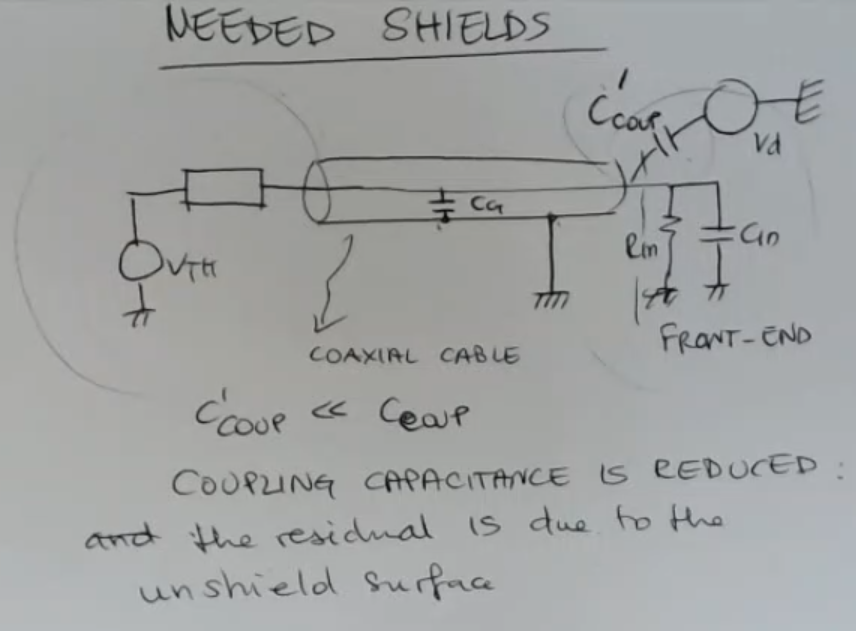 NEEDED SHIELDS
C'coup
Vd
CG
Rin
Cin
VTH
FRONT-END
COAXIAL CABLE
C'coup << Ccoup
COUPLING CAPACITANCE IS REDUCED :
and the residual is due to the
unshield surface